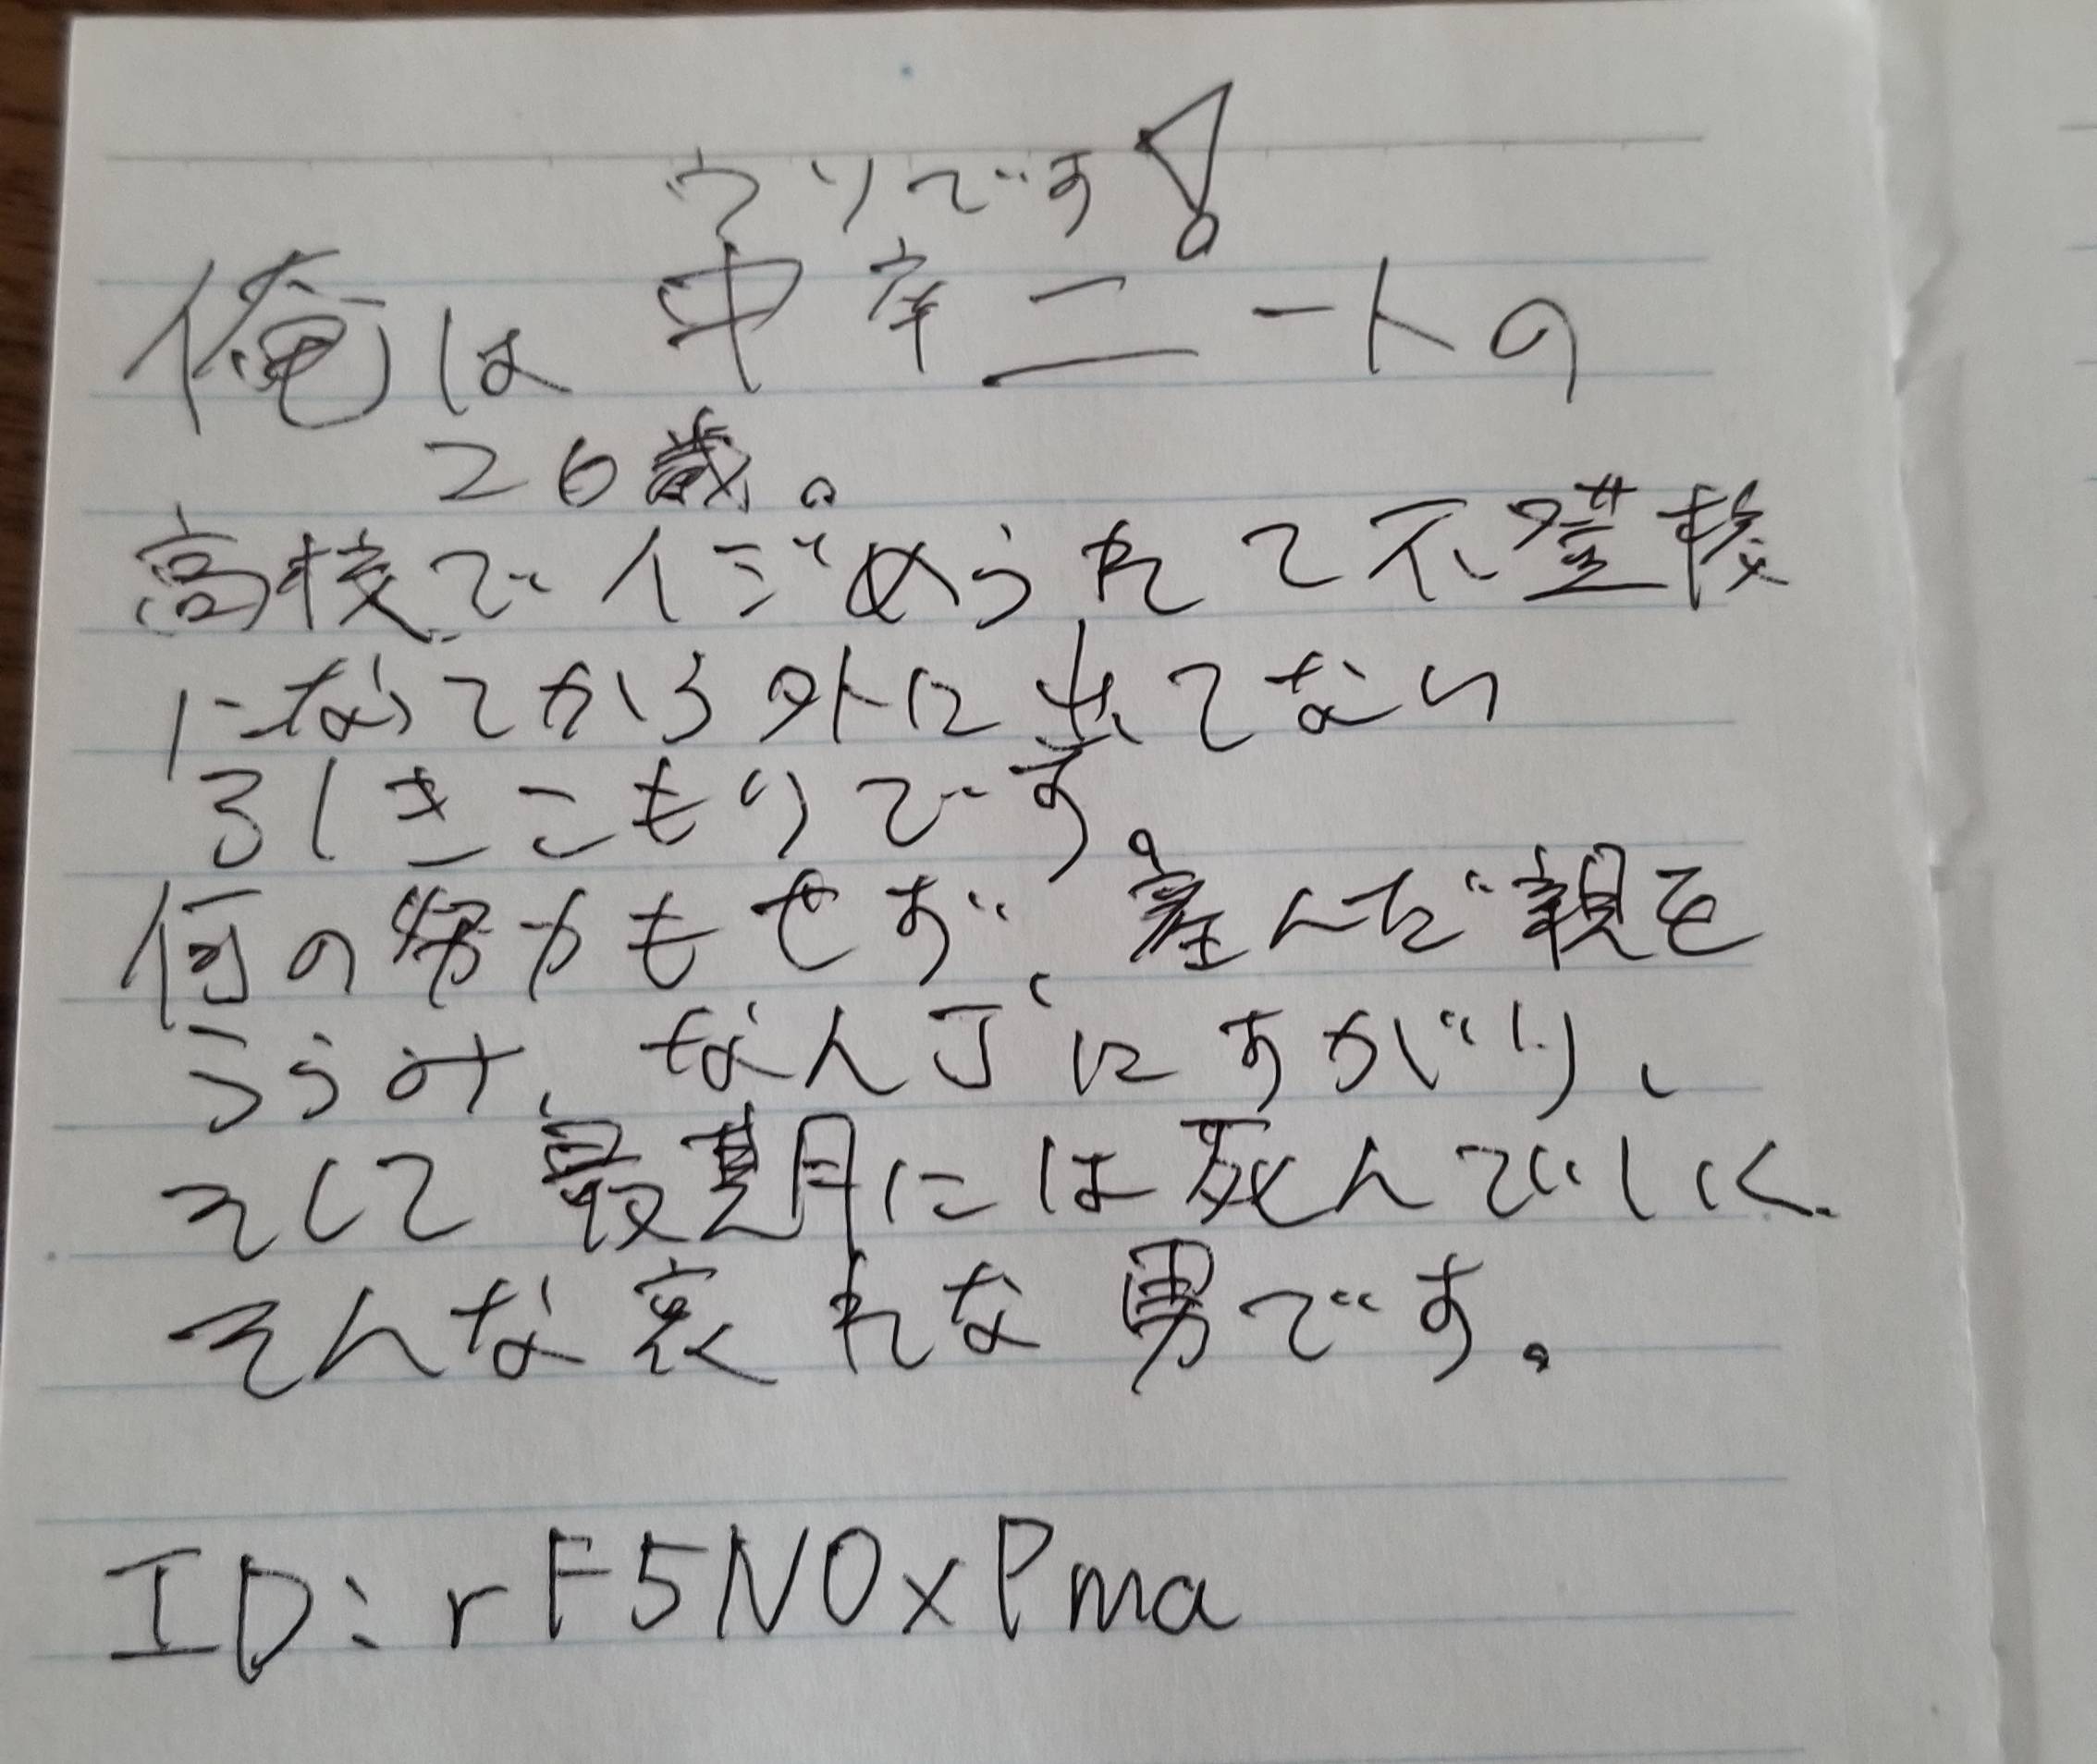 ウソです!
俺は中卒ニートの
26歳。
高校でイジめられて不登校
になってから外に出てない
引きこもりです。
何の努力もせず、産んだ親を
うらみ、なんJにすがり、
そして最期には死んでいく
そんな哀れな男です。
ID:rF5N0xPma